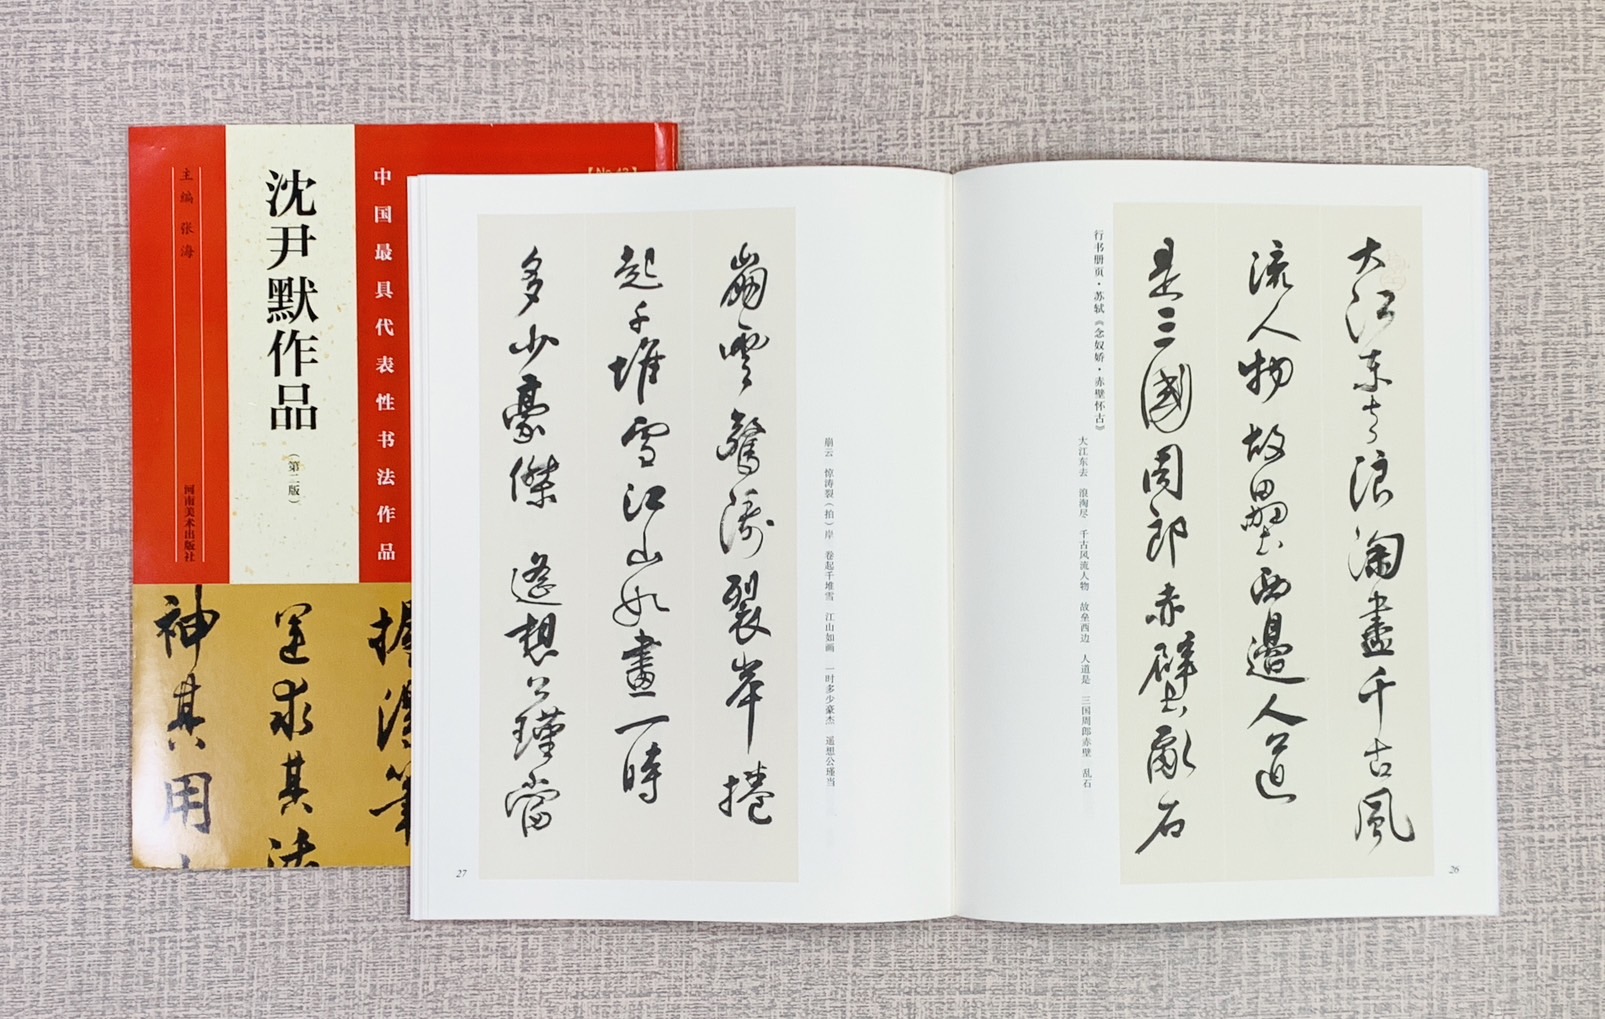 沈尹默作品
（第二版）
主编 张海
河南美术出版社
中国最具代表性书法作品
【No.42】
神其用
运求其法
握法笔
行书册页·苏轼《念奴娇·赤壁怀古》
大江东去 浪淘尽 千古风流人物 故垒西边 人道是 三国周郎赤壁 乱石
大江东去浪淘盡千古風
流人物故壘西邊人道
是三國周郎赤壁亂石
26
崩云 惊涛裂（拍）岸 卷起千堆雪 江山如画 一时多少豪杰 遥想公瑾当
崩雲驚濤裂岸捲
起千堆雪江山如畫一時
多少豪傑遙想公瑾當
27